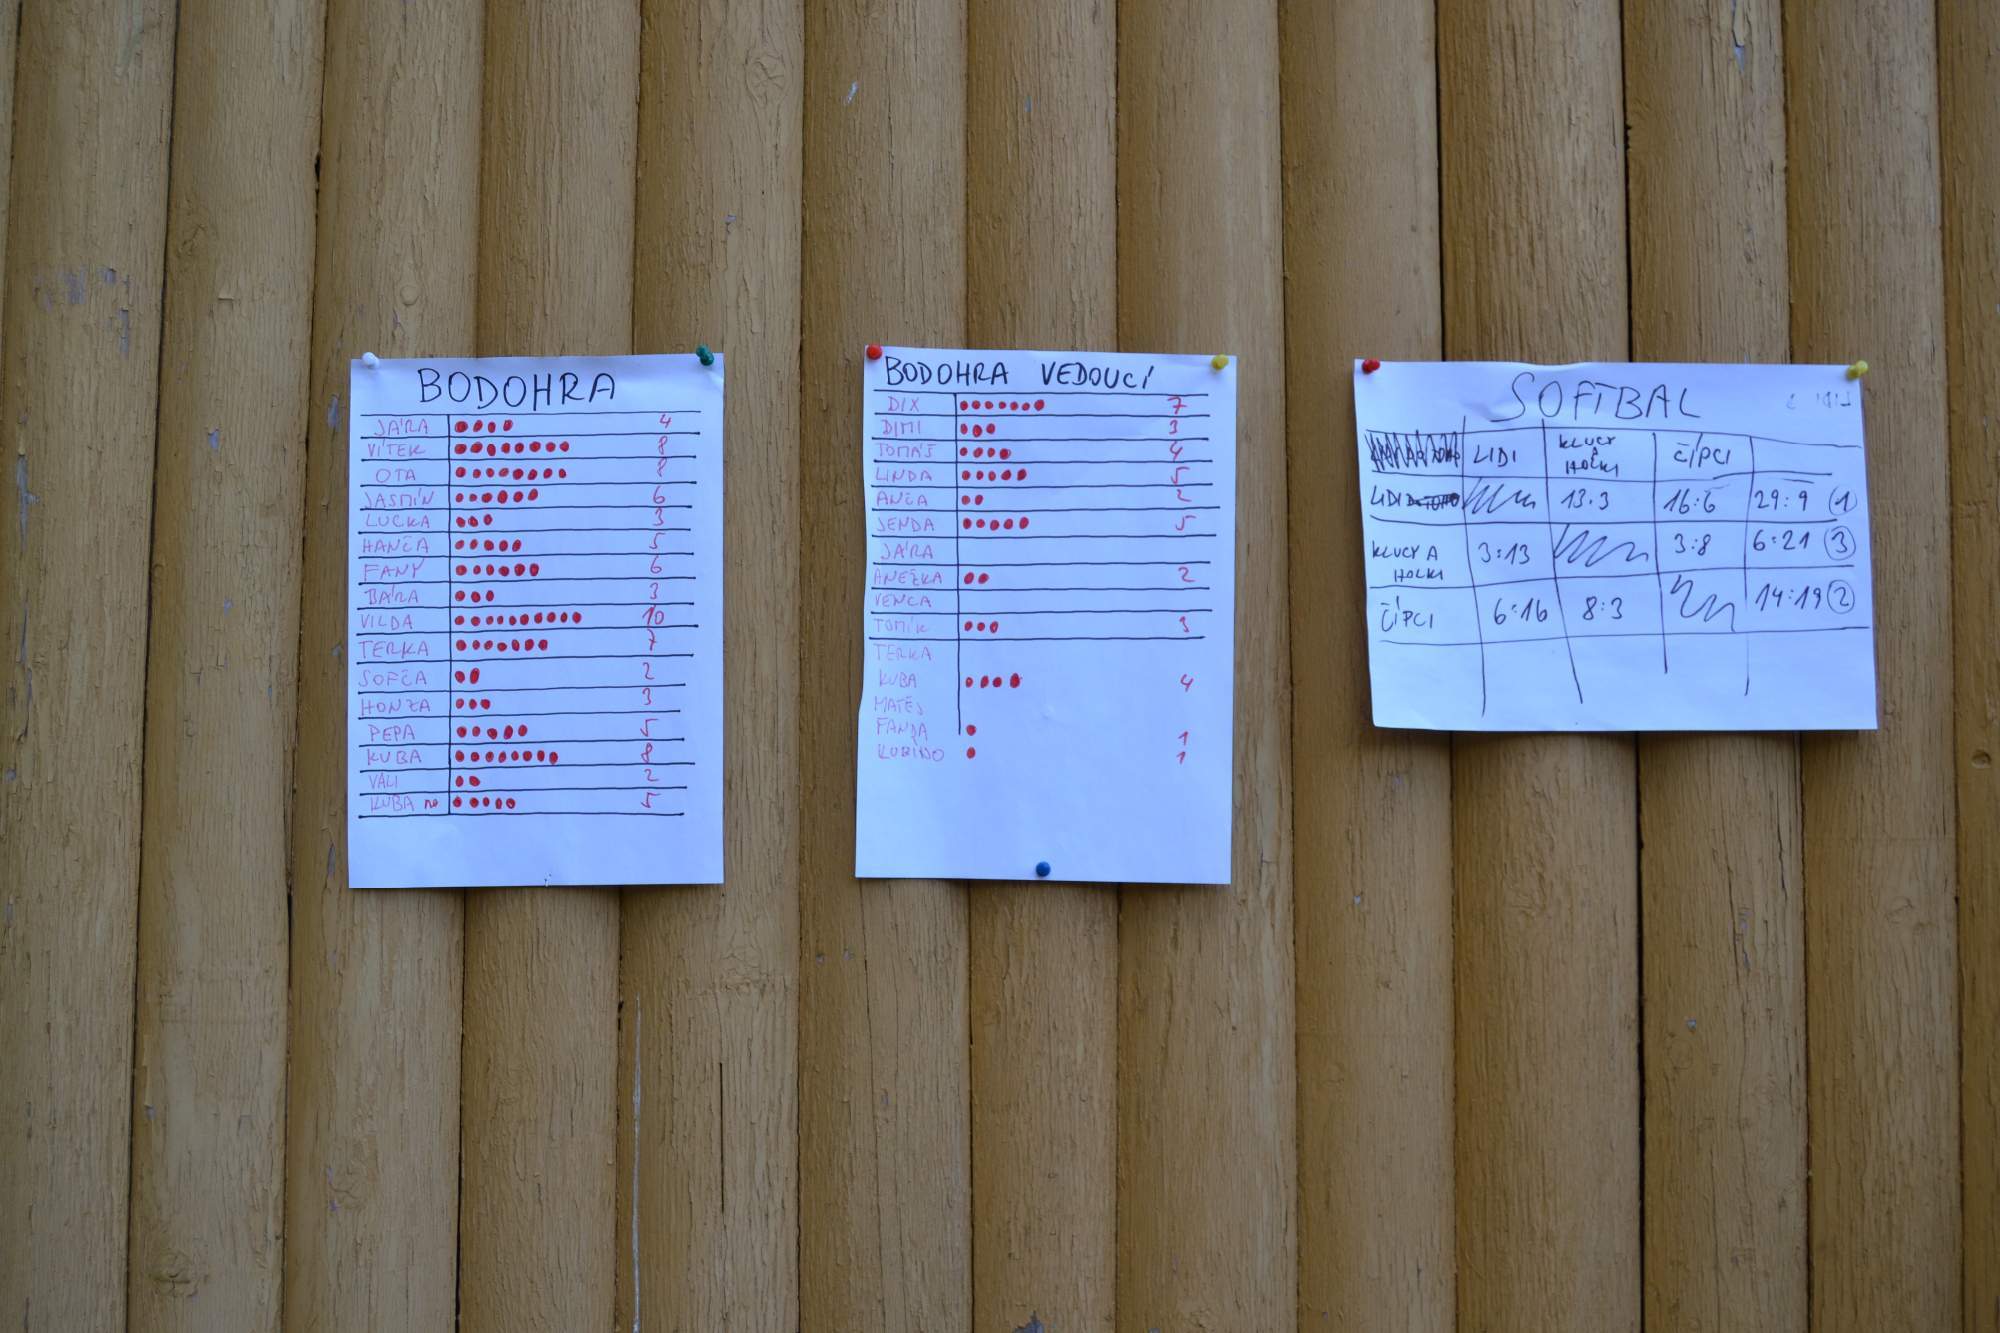 BODOHRA
JÁRA 4
VÍTEK 8
OTA 8
JASMÍN 6
LUCKA 3
HANČA 5
FANY 6
BÁRA 3
VILDA 10
TERKA 7
SOFČA 2
HONZA 3
PEPA 5
KUBA 8
VALI 2
KUBA 5
BODOHRA VEDOUCÍ
DIX 7
DIMI 3
TOMÁŠ 4
LINDA 5
ANČA 2
JENDA 5
JÁRA
ANEŽKA 2
VENCA
TOMÍK 3
TERKA
KUBA 4
MATĚJ
FANDA 1
KUBÍDO 1
SOFTBAL
LIDI KLUCI A HOLKI ČÍPCI
LIDI 13:3 16:6 29:9 1
KLUCI A HOLKI 3:13 3:8 6:21 3
ČÍPCI 6:16 8:3 14:19 2